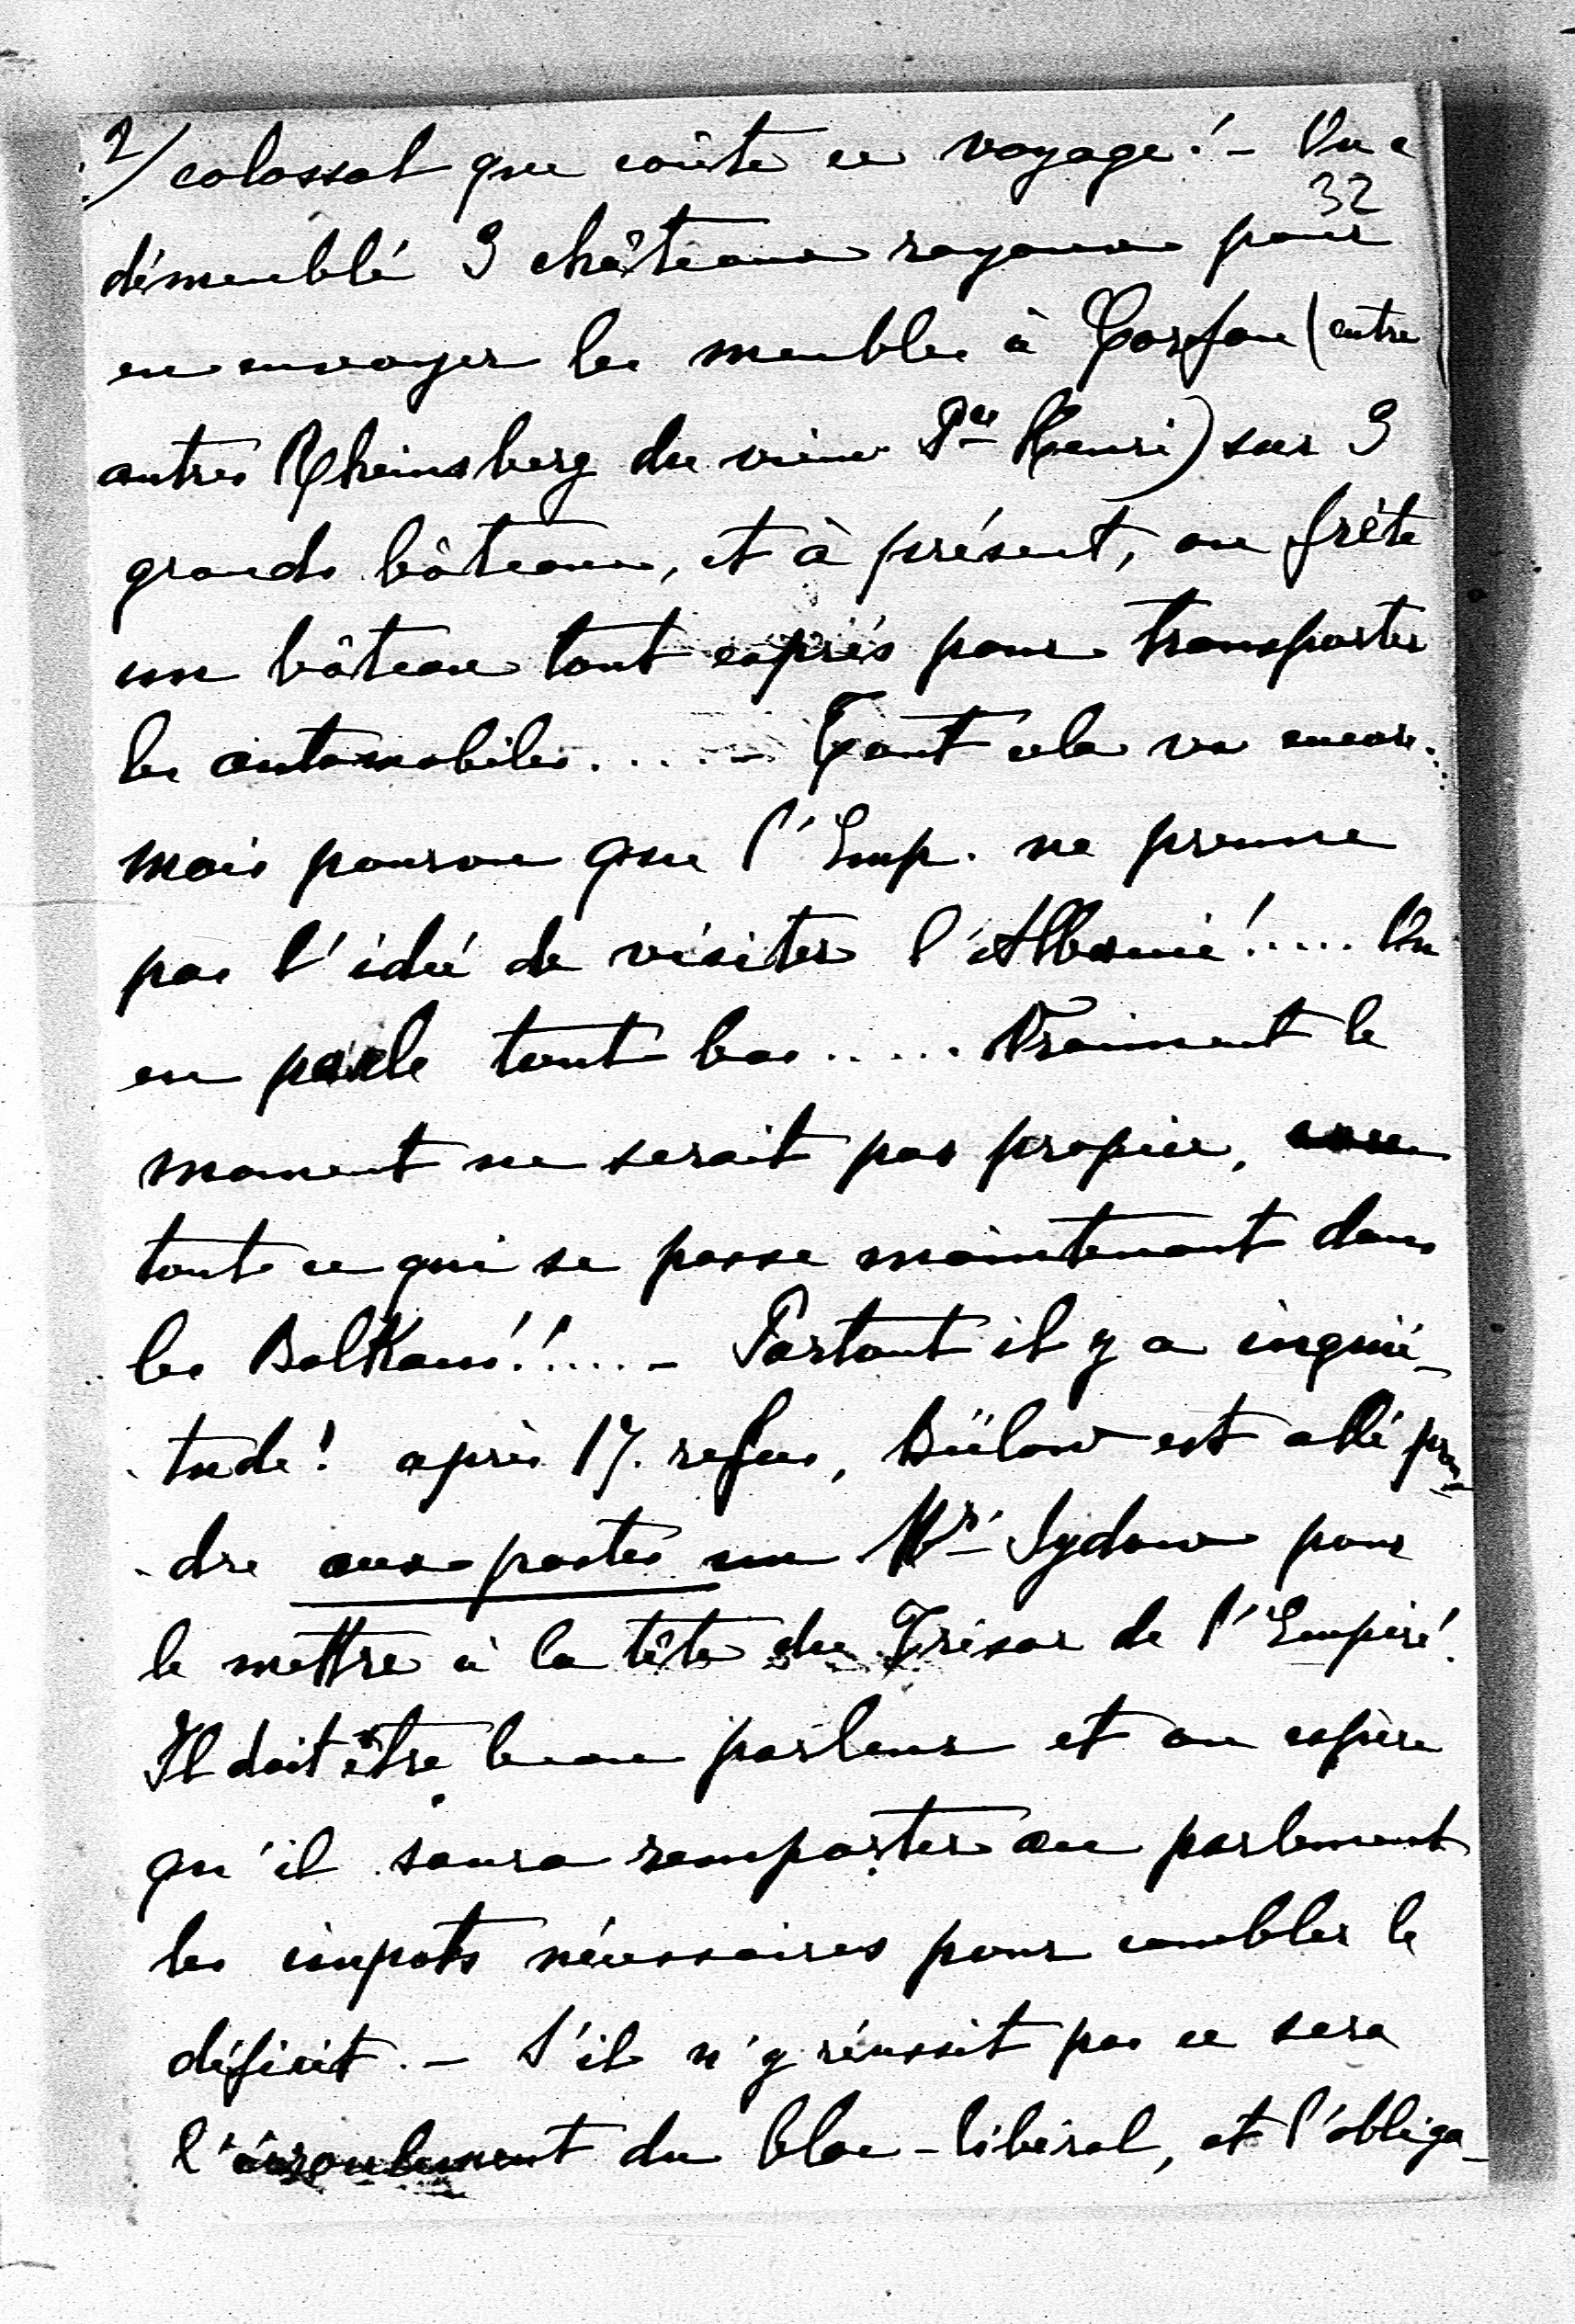 2/ colossal que coûte ce voyage! – On a
32
démeublé 3 châteaux royaux pour
en envoyer les meubles à Corfou (entre
autres Rheinsberg du vieux Pce Henri) sur 3
grands bâteaux, et à présent, on frète
un bâteau tout exprès pour transporter
les automobiles..... – Tout cela va encore...
mais pourvu que l'Emp. ne prenne
pas l'idée de visiter l'Albanie!..... On
en parle tout bas..... Vraiment le
moment ne serait pas propice,
tout ce qui se passe maintenant dans
les Balkans!!..... – Partout il y a inquié-
tude! après 17. refus, Bülow est allé pren-
dre aux postes un Mr Sydow pour
le mettre à la tête du Trésor de l'Empire!
Il doit être beau parleur et on espère
qu'il saura remporter au parlement
les impots nécessaires pour combler le
déficit. – S'il n'y réussit pas ce sera
l'écroulement du bloc-libéral, et l'obliga-